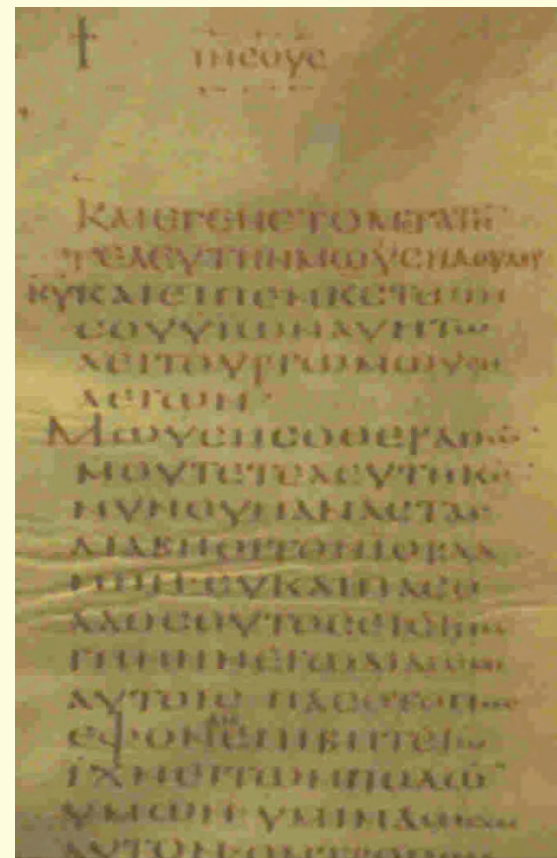 ΙΗϹΟΥϹ
ΚΑΙΕΓΕΝΕΤΟΜΕΤΑΤΗ̅
ΤΕΛΕΥΤΗΝΜΩΥϹΗΔΟΥΛΟΥ
ΚΥΚΑΙΕΙΠΕΝΚϹΤΩΙΗ
ϹΟΥΥΙΩΝΑΥΗΤΩ
ΛΕΙΤΟΥΡΓΩΜΩΥϹΗ
ΛΕΓΩΝ
ΜΩΥϹΗϹΟΘΕΡΑΠΩ̅
ΜΟΥΤΕΤΕΛΕΥΤΗΚΕ
ΝΥΝΟΥΝΑΝΑϹΤΑϹ
ΔΙΑΒΗΘΙΤΟΝΙΟΡΔΑ
ΝΗΝϹΥΚΑΙΠΑϹΟ
ΛΑΟϹΟΥΤΟϹΕΙϹΤΗΝ
ΓΗΝΗΝΕΓΩΔΙΔΩΜΙ
ΑΥΤΟΙϹ ΠΑϹΟΤΟΠΟϹ
ΕΦΟΝΑΝΕΠΙΒΗΤΕΤΩ
ΙΧΝΕΙΤΩΝΠΟΔΩ̅
ΥΜΩΝΥΜΙΝΔΩϹΩ
ΑΥΤΟΝΟΝΤΡΟΠΟΝ